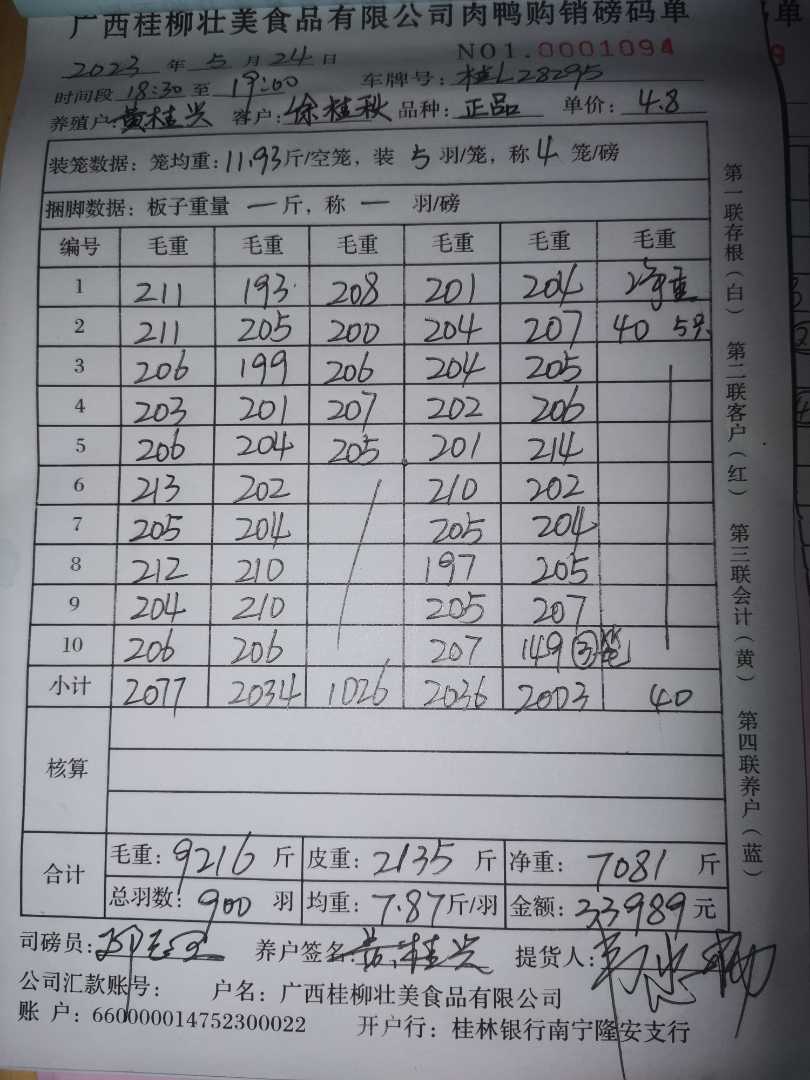 广西桂柳壮美食品有限公司肉鸭购销磅码单
2023 年 5 月 24 日 NO1.0001094
时间段 18:30 至 19:00 车牌号: 桂L28295
养殖户: 黄桂兴 客户: 徐桂秋 品种: 正品 单价: 4.8
装笼数据: 笼均重: 11.93 斤/空笼, 装 5 羽/笼, 称 4 笼/磅
捆脚数据: 板子重量 — 斤, 称 — 羽/磅
编号 毛重 毛重 毛重 毛重 毛重 毛重
1 211 193 208 201 204 净重
2 211 205 200 204 207 40 5只
3 206 199 206 204 205
4 203 201 207 202 206
5 206 204 205 201 214
6 213 202 210 202
7 205 204 205 204
8 212 210 197 205
9 204 210 205 207
10 206 206 207 149 ③笼
小计 2077 2034 1026 2036 2003 40
核算
合计 毛重: 9216 斤 皮重: 2135 斤 净重: 7081 斤
总羽数: 900 羽 均重: 7.87 斤/羽 金额: 33989 元
司磅员: 养户签名: 黄桂兴 提货人:
公司汇款账号: 户名: 广西桂柳壮美食品有限公司
账 户: 660000014752300022 开户行: 桂林银行南宁隆安支行
第一联存根(白) 第二联客户(红) 第三联会计(黄) 第四联养户(蓝)